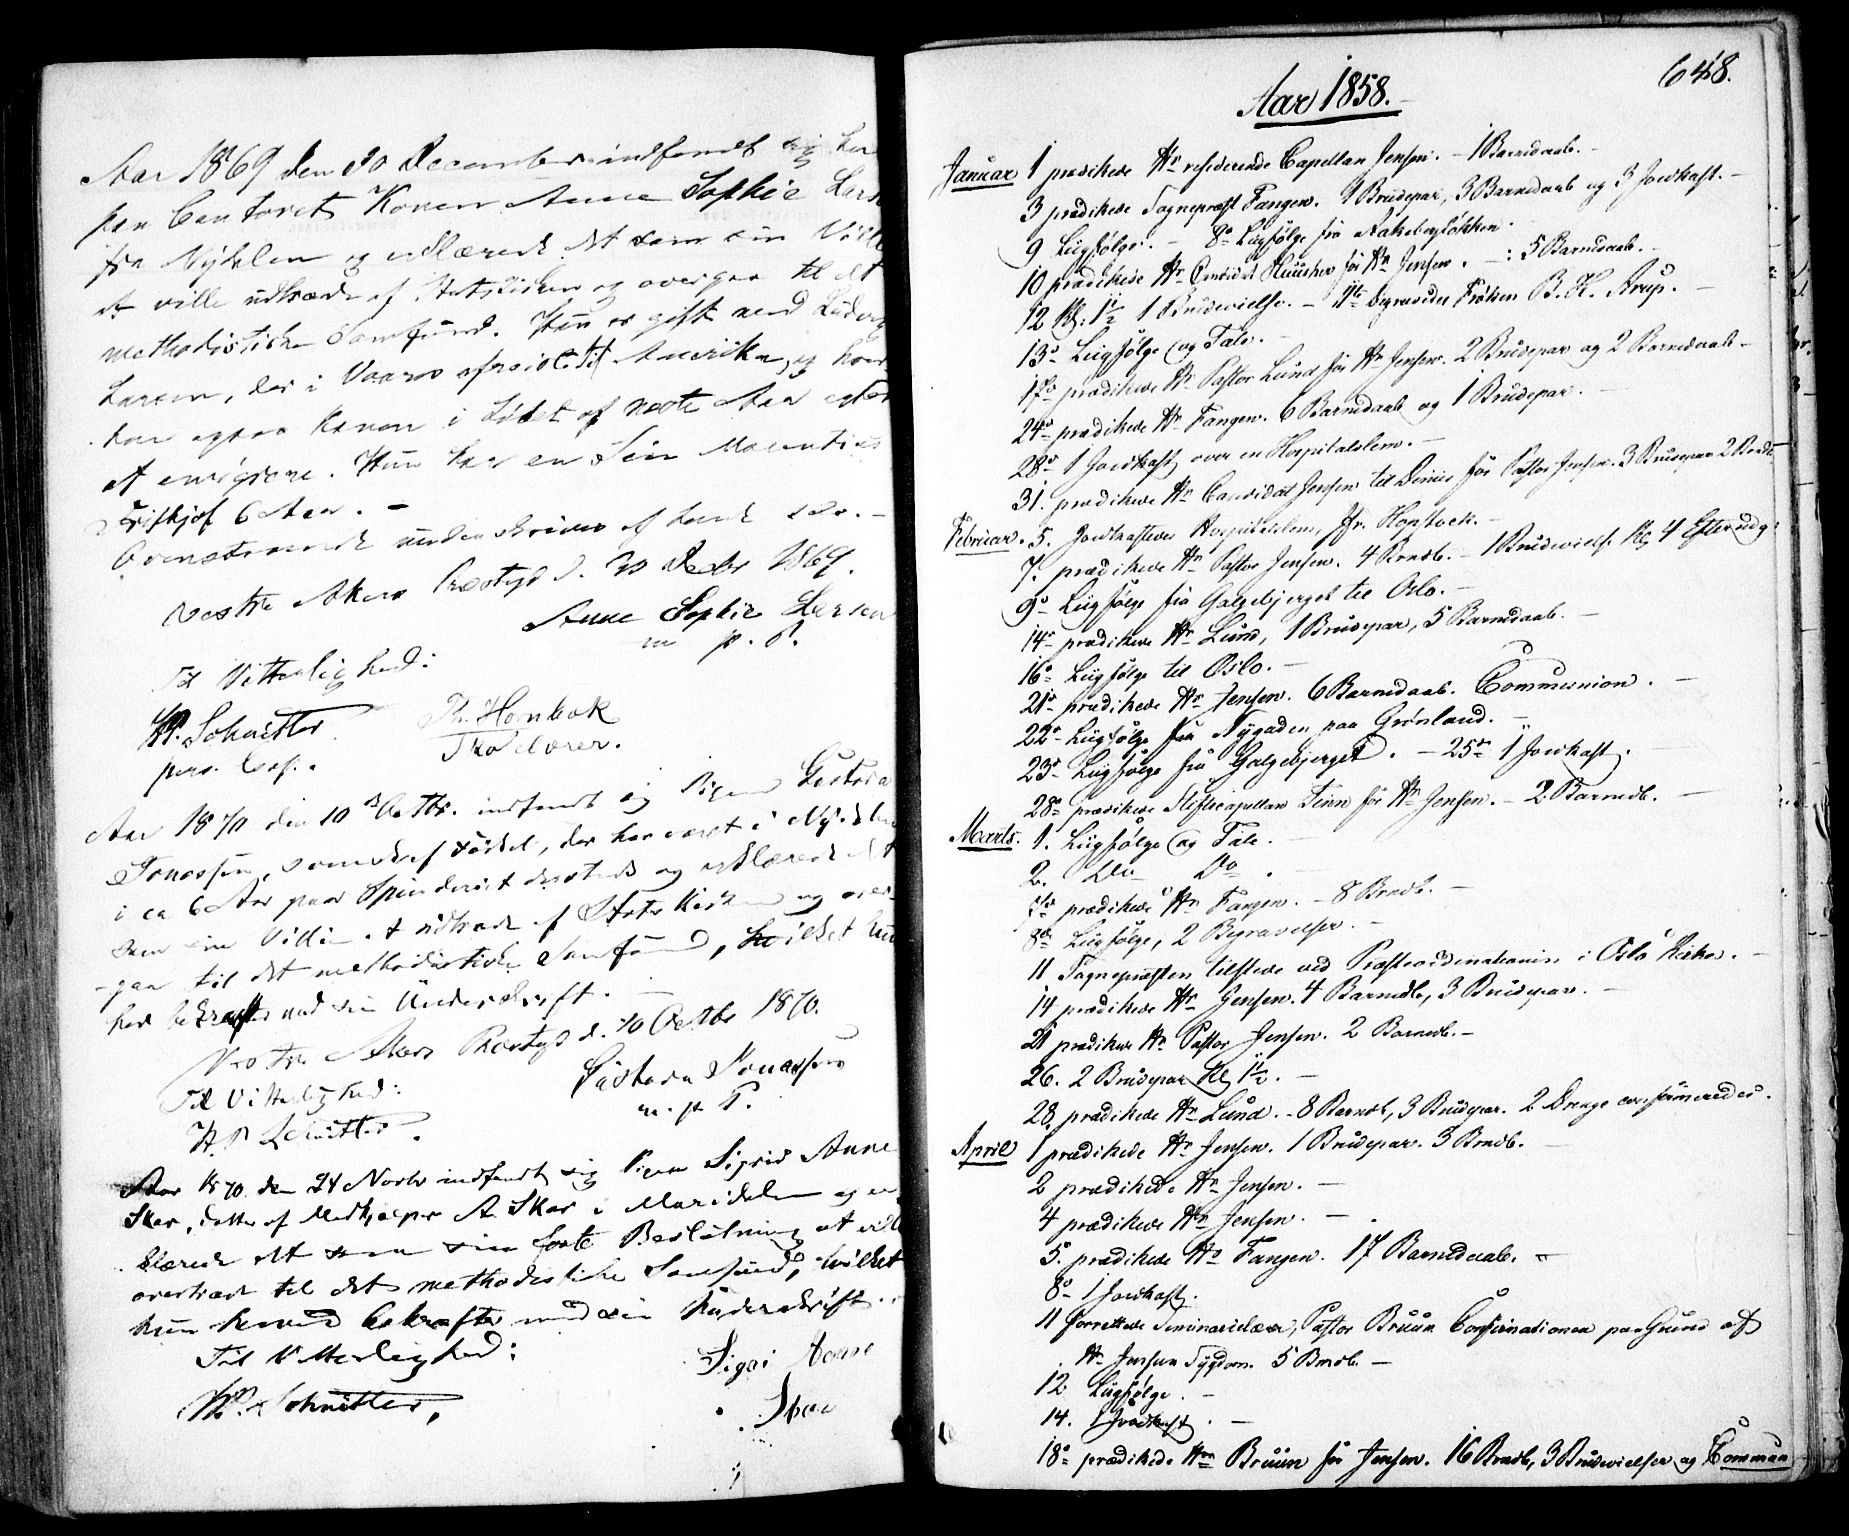 Aar 1869 den 30 December indfandt sig her
paa Contoret Konen Anne Sophie Lars
fra Nydalen og erklærede det som sin Villi
at ville udtræde af Statskirken og overgaa til det
methodistiske Samfund. Hun er gift med Ludvig
Larsen, der i Vaares afreiste til Amerika, og hvor
hen ogsaa Konen i Løbet af næste Aar agter
at emigrere. Hun har en Søn Mauritius
Frithjof 6 Aar. -
Ovenstaaende underskrives af hende selv. -
Vestre Akers Præstgd d. 30 Decbr 1869.
Anne Sophie Larsen
m. p. P.
Til Vitterlighed:
H. Schnitler
pers. Cap.
Th. Hornbok
Skolelærer.
Aar 1870 den 10 Octbr. indfandt sig Pigen Gustava
Jonassen, svensk af Fødsel, der har været i Nydalen
i ca 6 Aar paa Spinderiet dersteds og erklærede det
som sin Villie at udtræde af Stats Kirken og over-
gaa til det methodistiske Samfund, hvilket hun
her bekræfter med sin Underskrift. -
Vestre Akers Præstgd d. 10 Octbr 1870.
Til Vitterlighed:
Gustava Jonassen
m. p. P.
H. P. Schnitler.
Aar 1870 den 24 Novbr indfandt sig Pigen Sigrid Anne
Skar, datter af A. Skar i Maridalen og er-
klærede det som sin faste Beslutning at ville
overtræde til det methodistiske Samfund, hvilket
hun herved bekræfter med sin Underskrift.
Til Vitterlighed:
Sigri Anne
Skar
H. Schnitler,
648.
Aar 1858.
Januar 1 prædikede Hr residerende Capellan Jensen. - 1 Barnedaab. -
3 prædikede Sognepræst Fangen. 1 Brudepar, 3 Barnedaab og 3 Jordkast. -
9 Liigfølge. - 8de Liigfølge fra Rakebergløkken.
10 prædikede Hr Candidat for Hr Jensen. - : 5 Barnedaab. -
12 Kl. 1½ 1 Brudevielse. - Frøken B. K. Arup. -
13de Liigfølge og Tale. -
17de prædikede Hr Pastor Lund for Hr Jensen. 2 Brudepar og 2 Barnedaab -
24de prædikede Hr Fangen. 6 Barnedaab og 1 Brudepar. -
28de 1 Jordkast over en Hospitalslem. -
31. prædikede Hr Candidat Jensen til for Pastor Jensen. 3 Brudepar 2 Barnedb
Februar. 5. Jordkastedes Hospitalslem, Jfr. Hopstock. -
7. prædikede Hr Pastor Jensen. 4 Brndb. - 1 Brudeviels. Kl 4 Eftermdg:
9de Liigfølge fra Galgebjerget til Oslo. -
14de prædikede Hr Lund, 1 Brudepar, 5 Barnedaab. -
16de Liigfølge til Oslo. -
21de prædikede Hr Jensen. 6 Barnedaab. Communion. -
22de Liigfølge fra Nygaden paa Grønland. -
23de Liigfølge fra Galgebjerget. - 25de 1 Jordkast.
28de prædikede Stiftscapellan Finn for Hr Jensen. - 2 Barnedb. -
Marts. 1. Liigfølge og Tale. -
2. Do Do.
7de prædikede Hr Fangen. - 8 Brndb. -
8de Liigfølge, 2 Begravelser. -
11 Sognepræsten tilstede ved Præsteordinationen i Oslo Kirke. -
14 prædikede Hr Jensen. 4 Barnedb, 3 Brudepar. -
21 prædikede Hr Pastor Jensen. 2 Barnedb. -
26. 2 Brudepar Kl 1½. -
28 prædikede Hr Lund. - 8 Barndb, 3 Brudepar. 2 Drenge confirmeredes.
April 1 prædikede Hr Jensen. 1 Brudepar. 3 Brndb. -
2 prædikede Hr Jensen. -
4 prædikede Hr Jensen. -
5. prædikede Hr Fangen. 17 Barnedaab. -
8de 1 Jordkast.
11 forrettede Seminarielærer, Pastor Bruun Confirmationen paa Grund af
Hr Jensen Sygdom. 5 Brndb. -
12 Liigfølge. -
14. 1 Jordkast. -
18de prædikede Hr Bruun for Jensen. 16 Brndb, 3 Brudevielser og Commun